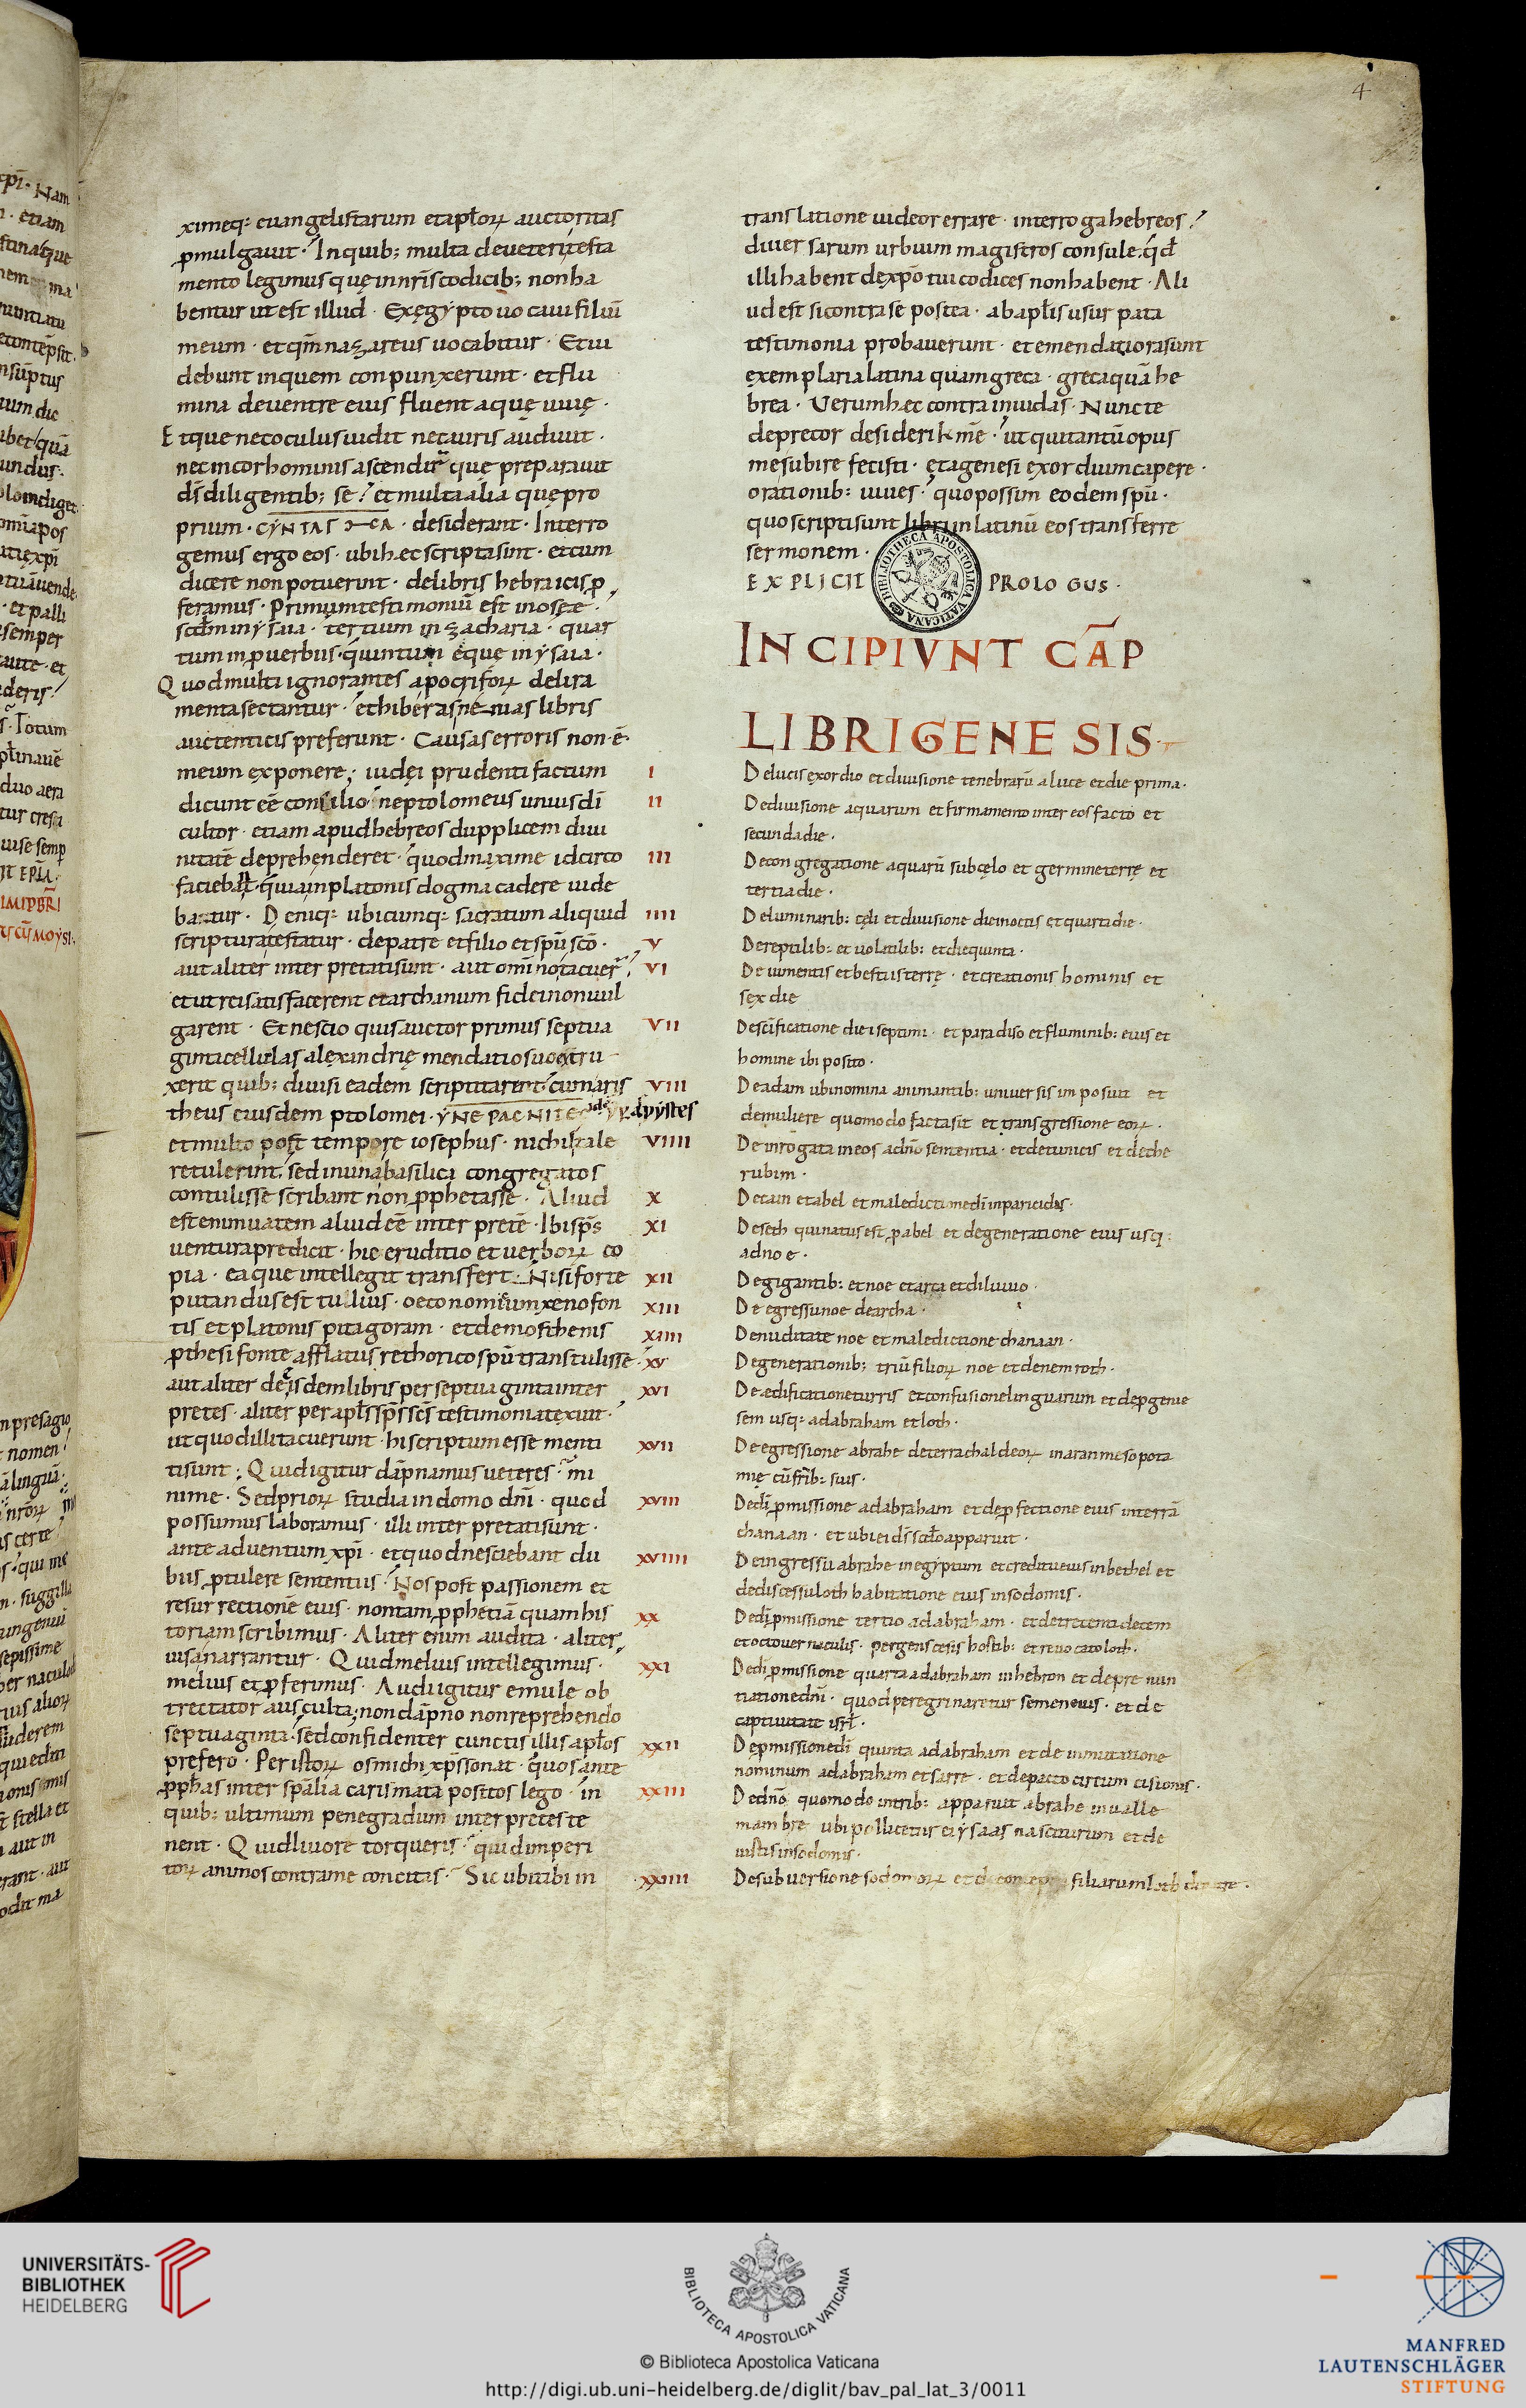 4
ximeq: euangelistarum et aplorꝝ auctoritas
ꝓmulgauit · In quib; multa de ueteri testa
mento legimus quę in nr̄is codicib; non ha
bentur ut est illud · Ex ęgypto uocaui filiū
meum · et qm̄ nazareus uocabitur · Et ui
debunt in quem conpunxerunt · et flu
mina de uentre eius fluent aquę uiuę ·
Et que nec oculus uidit nec auris audiuit ·
nec in cor hominis ascendit que preparauit
ds̄ diligentib; se · et multa alia quę pro
prium · CYNTAS · desiderant · Interro
gemus ergo eos · ubi hęc scripta sint · et cum
dicere non potuerint · de libris hebraicis ꝓ
feramus · Primum testimoniū est in osee ·
scd̄m in ysaia · tertium in zacharia · quar
tum in ꝓuerbiis · quintum ęque in ysaia ·
Quod multi ignorantes apocrifoꝝ delira
menta sectantur · et hiberas nenias libris
auctenticis preferunt · Causas erroris non · ē ·
meum exponere; iudęi prudenti factum
dicunt eē consilio · ne ptolomeus unius dī
cultor · etiam apud hebreos dupplicem diui
nitatē deprehenderet · quod maxime idcirco
faciebant · quia in platonis dogma cadere uide
batur · Deniq: ubicumq: sacratum aliquid
scriptura testatur · de patre et filio et spū sc̄o ·
aut aliter interpretati sunt · aut omīno tacuer̄
et ut regi satisfacerent et archanum fidei non uul
garent · Et nescio quis auctor primus septua
ginta cellulas alexandrię mendatio suo extru
xerit quib; diuisi eadem scriptitarent · cum aris
theus eiusdem ptolomei · YNEPACNITEC yperaspystes
et multo post tempore iosephus · nichil tale
retulerint, sed in una basilica congregatos
contulisse scribant non ꝓphetasse · Aliud
est enim uatem aliud eē interpretē · Ibi sps̄
uentura predicit · hic eruditio et uerborꝝ co
pia · ea que intellegit transfert · Nisi forte
putandus est tullius · oeconomicum xenofon
tis et platonis pitagoram · et demosthenis
ꝓthesifonte afflatus rethorico spū transtulisse ·
aut aliter de eisdem libris per septuaginta inter
pretes · aliter per apl̄s sps̄ sc̄s testimonia texuit ·
ut quod illi tacuerunt · hi scriptum esse menti
ti sunt; Quid igitur dāpnamus ueteres · mi
nime · Sed priorꝝ studia in domo dn̄i · quod
possumus laboramus · illi interpretati sunt ·
ante aduentum xp̄i · et quod nesciebant du
biis ꝓtulere sententiis · Nos post passionem et
resurrectione eius · non tam ꝓphetiā quam his
toriam scribimus · Aliter enim audita · aliter
uisa narrantur · Quid melius intellegimus ·
melius et ꝓferimus · Audi igitur emule ob
trectator ausculta; non dāpno non reprehendo
septuaginta · sed confidenter cunctis illis apl̄os
prefero · Per istorꝝ os michi xps̄ sonat · quos ante
ꝓphas inter spālia carismata positos lego · in
quib; ultimum pene gradum interpretes te
nent · Quid liuore torqueris · quid imperi
torꝝ animos contra me concitas · Sicubi tibi in
translatione uideor errare · interroga hebreos ·
diuersarum urbium magistros consule · qd̄
illi habent de xp̄o tui codices non habent · Ali
ud est si contra se postea · ab apl̄is usurpata
testimonia probauerunt · et emendatiora sunt
exemplaria latina quam greca · greca quā he
brea · Verum hęc contra inuidas · Nunc te
deprecor desideri km̄e · ut qui tantū opus
me subire fecisti · et a genesi exordium capere ·
orationib: iuues · quo possim eodem spū ·
quo scripti sunt libri in latinū eos transferre
sermonem ·
EXPLICIT PROLOGUS ·
BIBLIOTHECA APOSTOLICA VATICANA
INCIPIVNT CAP
LIBRI GENESIS
I De lucis exordio et diuisione tenebrarū a luce et die prima ·
II De diuisione aquarum et firmamento inter eos facto et
secunda die ·
III De congregatione aquarū sub cęlo et germine terrę et
tertia die ·
IIII De luminarib: cęli et diuisione diei noctis et quarti die ·
V De reptilib: et uolatilib: et die quinta ·
VI De iumentis et bestiis terrę · et creationis hominis et
sex die
VII De sc̄ificatione diei septimi · et paradiso et fluminib: eius et
homine ibi posito ·
VIII De adam ubi nomina animantib: uniuersis imposuit et
de muliere quomodo facta sit et transgressione eorꝝ ·
VIIII De inrogata in eos a dn̄o sententia · et de tunicis et de che
rubim ·
X De cain et abel et maledictione dī in paricidas ·
XI De seth qui natus est ꝓ abel et de generatione eius usq:
ad noe ·
XII De gigantib: et noe et arca et diluuio ·
XIII De egressu noe de archa ·
XIIII De nuditate noe et maledictione chanaan ·
XV De generationib; triū filiorꝝ noe et de nemroth ·
XVI De ædificatione turris et confusione linguarum et de ꝓgenie
sem usq: ad abraham et loth ·
XVII De egressione abrahe de terra chaldeorꝝ in aran mesopota
mię cū frīb: suis ·
XVIII De dī ꝓmissione ad abraham et de ꝓfectione eius in terrā
chanaan · et ubi ei ds̄ scd̄o apparuit ·
XVIIII De ingressu abrahe in egyptum et reditu eius in bethel et
de discessu loth habitatione eius in sodomis ·
XX De dī ꝓmissione tertio ad abraham · et de trecenti decem
et octo uernaculis · pergens cesis hostib: et reuocato loth ·
XXI De dī ꝓmissione quarta ad abraham in hebron et de prenun
tiatione dn̄i · quod peregrinaretur semen eius · et de
captiuitate isrl̄ ·
XXII De ꝓmissione dī quinta ad abraham et de inmutatione
nominum ad abraham et sarre · et de pacto circumcisionis ·
XXIII De dn̄o quomodo in trib: apparuit abrahe in ualle
mambre ubi pollicetur ei ysaas nasciturum et de
iustis in sodomis ·
XXIIII De subuersione sodomorꝝ et de filiarum loth
UNIVERSITÄTS-
BIBLIOTHEK
HEIDELBERG
BIBLIOTECA APOSTOLICA VATICANA
© Biblioteca Apostolica Vaticana
http://digi.ub.uni-heidelberg.de/diglit/bav_pal_lat_3/0011
MANFRED
LAUTENSCHLÄGER
STIFTUNG